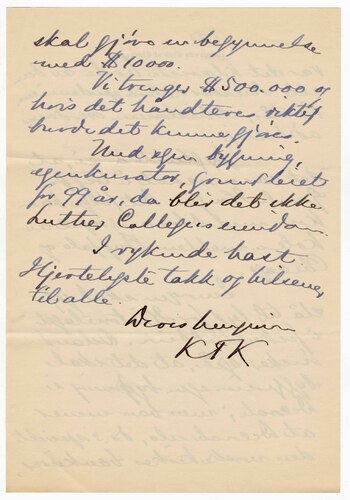 skal gjøre en begynnelse
med $10000.
Vi trenger $500.000 og
hvis det håndteres riktig
burde det kunne gjøres.
Med egen bygning,
egen kurator, grund leiet
for 99 år, da blir det ikke
Luther Colleges eiendom.
I rykende hast
Hjerteligste takk og hilsener
til alle.
Deres hengivne
KTK